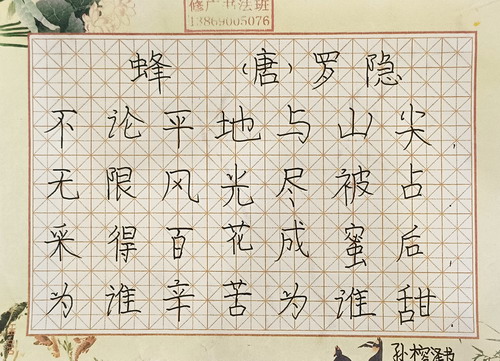 修广书法班
13869005076
蜂 (唐) 罗隐
不论平地与山尖,
无限风光尽被占.
采得百花成蜜后,
为谁辛苦为谁甜.
孙榕泽书